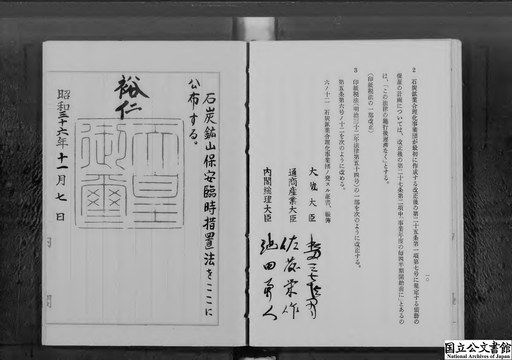 2 石炭鉱業合理化事業団が最初に作成する改正後の第二十五条第一項第七号に規定する債務の
保証の計画については、改正後の第二十七条第二項中「事業年度の毎四半期開始前に」とあるの
は、「この法律の施行後遅滞なく」とする。
(印紙税法の一部改正)
3 印紙税法(明治三十二年法律第五十四号)の一部を次のように改正する。
第五条第六号ノ十二を次のように改める。
六ノ十二 石炭鉱業合理化事業団ノ発スル証書、帳簿
大蔵大臣
通商産業大臣 佐藤栄作
内閣総理大臣 池田勇人
石炭鉱山保安臨時措置法をここに
公布する。
裕仁
天皇御璽
昭和三十六年十一月七日
国立公文書館
National Archives of Japan